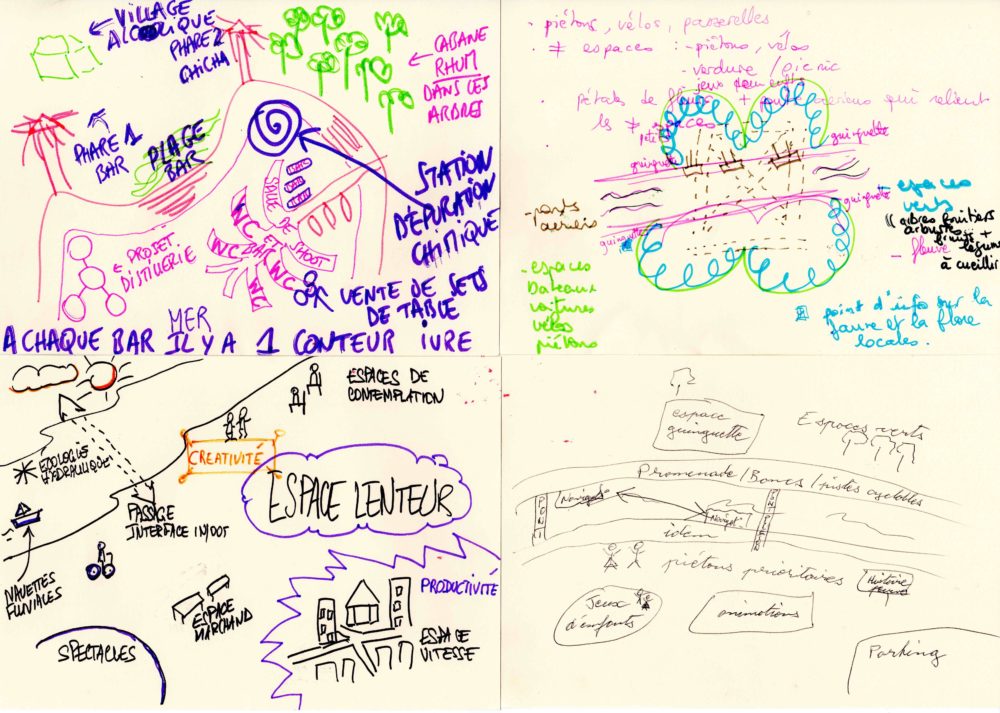 VILLAGE
ALCOOLIQUE
PHARE 2
CHICHA
CABANE
RHUM
DANS LES
ARBRES
PHARE 1
BAR
PLAGE
BAR
STATION
D'EPURATION
CHIMIQUE
SALLE DE SHOOT
WC
WC ET BAR
WC
WC
WC
PROJET
DISTILLERIE
VENTE DE SETS
DE TABLE
MER
A CHAQUE BAR IL Y A 1 CONTEUR IVRE
- piétons, vélos, passerelles
≠ espaces : - piétons, vélos
- verdure / picnic
- jeux
pétales de fleurs + ponts aériens qui relient
les ≠ espaces
guinguette
guinguette
guinguette
guinguette
- ponts
aériens
- espaces
verts
(( arbres fruitiers
arbustes
fruits +
légumes
à cueillir
- fleuve
- espaces
bateaux
voitures
vélos
piétons
point d'info sur la
faune et la flore
locales.
ESPACES DE
CONTEMPLATION
ECOLOGIE
HYDRAULIQUE
CREATIVITÉ
ESPACE LENTEUR
PASSAGE
INTERFACE IN/OUT
NAVETTES
FLUVIALES
ESPACE
MARCHAND
SPECTACLES
PRODUCTIVITÉ
ESPACE
VITESSE
espace
guinguette
Espaces verts
Promenade / Bancs / pistes cyclables
PONT
Navigat°
Navigat°
idem
piétons prioritaires
Histoire
fleuve
Jeux
d'enfants
animations
Parking